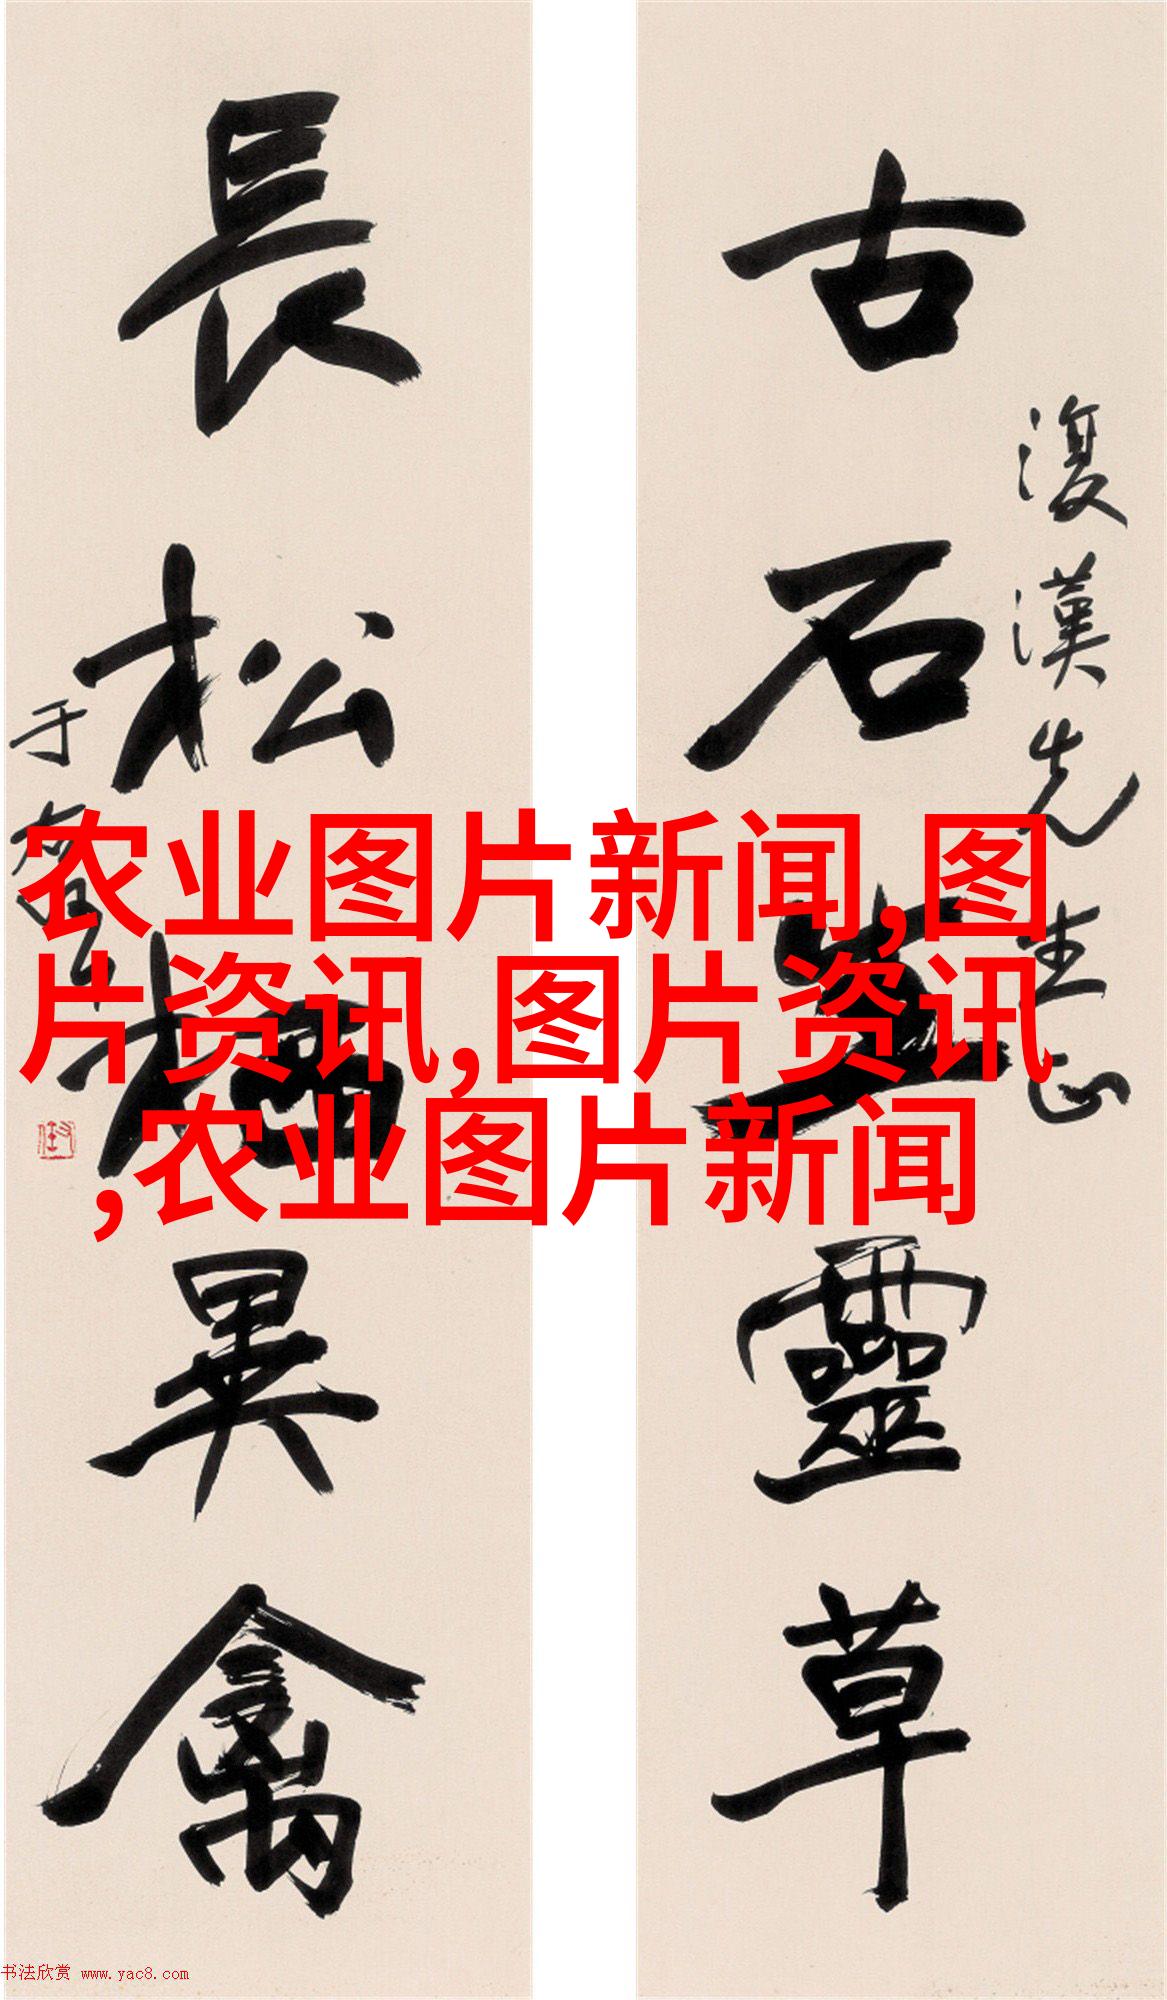 古石生靈草
長松栖異禽
復漢先生正
于右任
农业图片新闻,图
片资讯,图片资讯
,农业图片新闻
书法欣赏 www.yac8.com